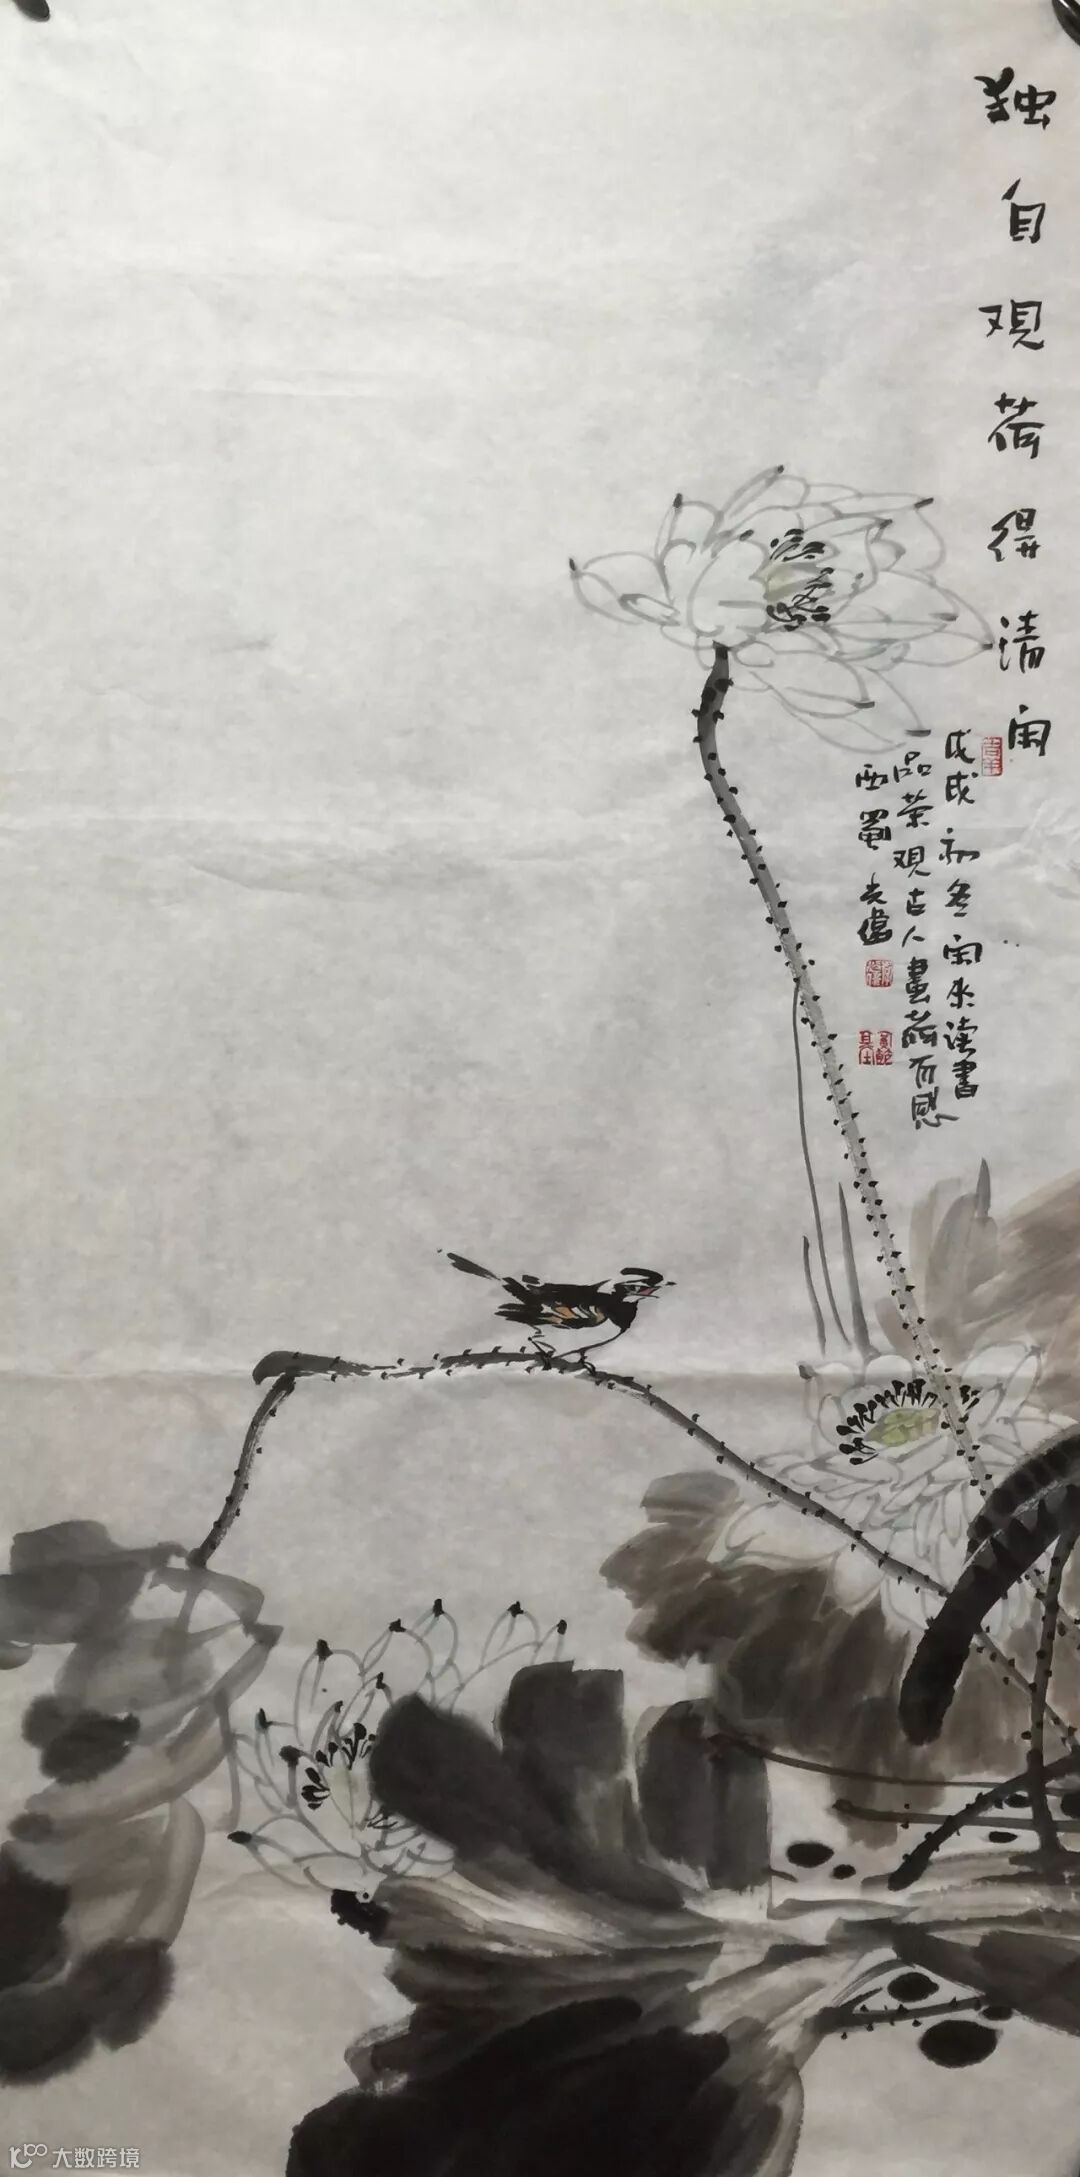 独自观荷得清闲
戊戌初冬闲来读书
一品荣观古人畫荷有感
西蜀光偉
大数跨境